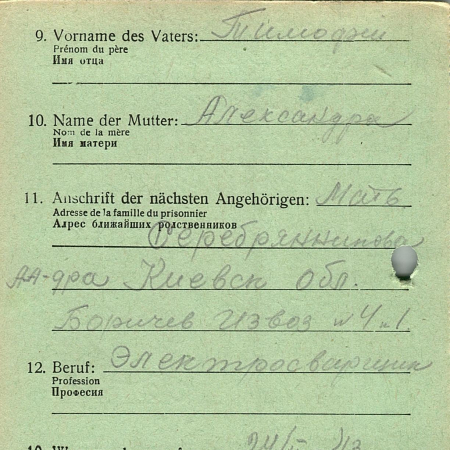 9. Vorname des Vaters: Тимофей
Prénom du père
Имя отца
10. Name der Mutter: Александра
Nom de la mère
Имя матери
11. Anschrift der nächsten Angehörigen: Мать
Adresse de la famille du prisonnier
Адрес ближайших родственников
Серебрянникова
Киевск обл.
Боричев извоз № 4 1
12. Beruf: Электросварщик
Profession
Професия